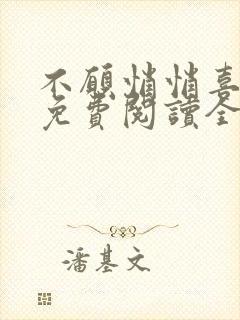 不願悄悄喜
免費閱讀全
潘基文